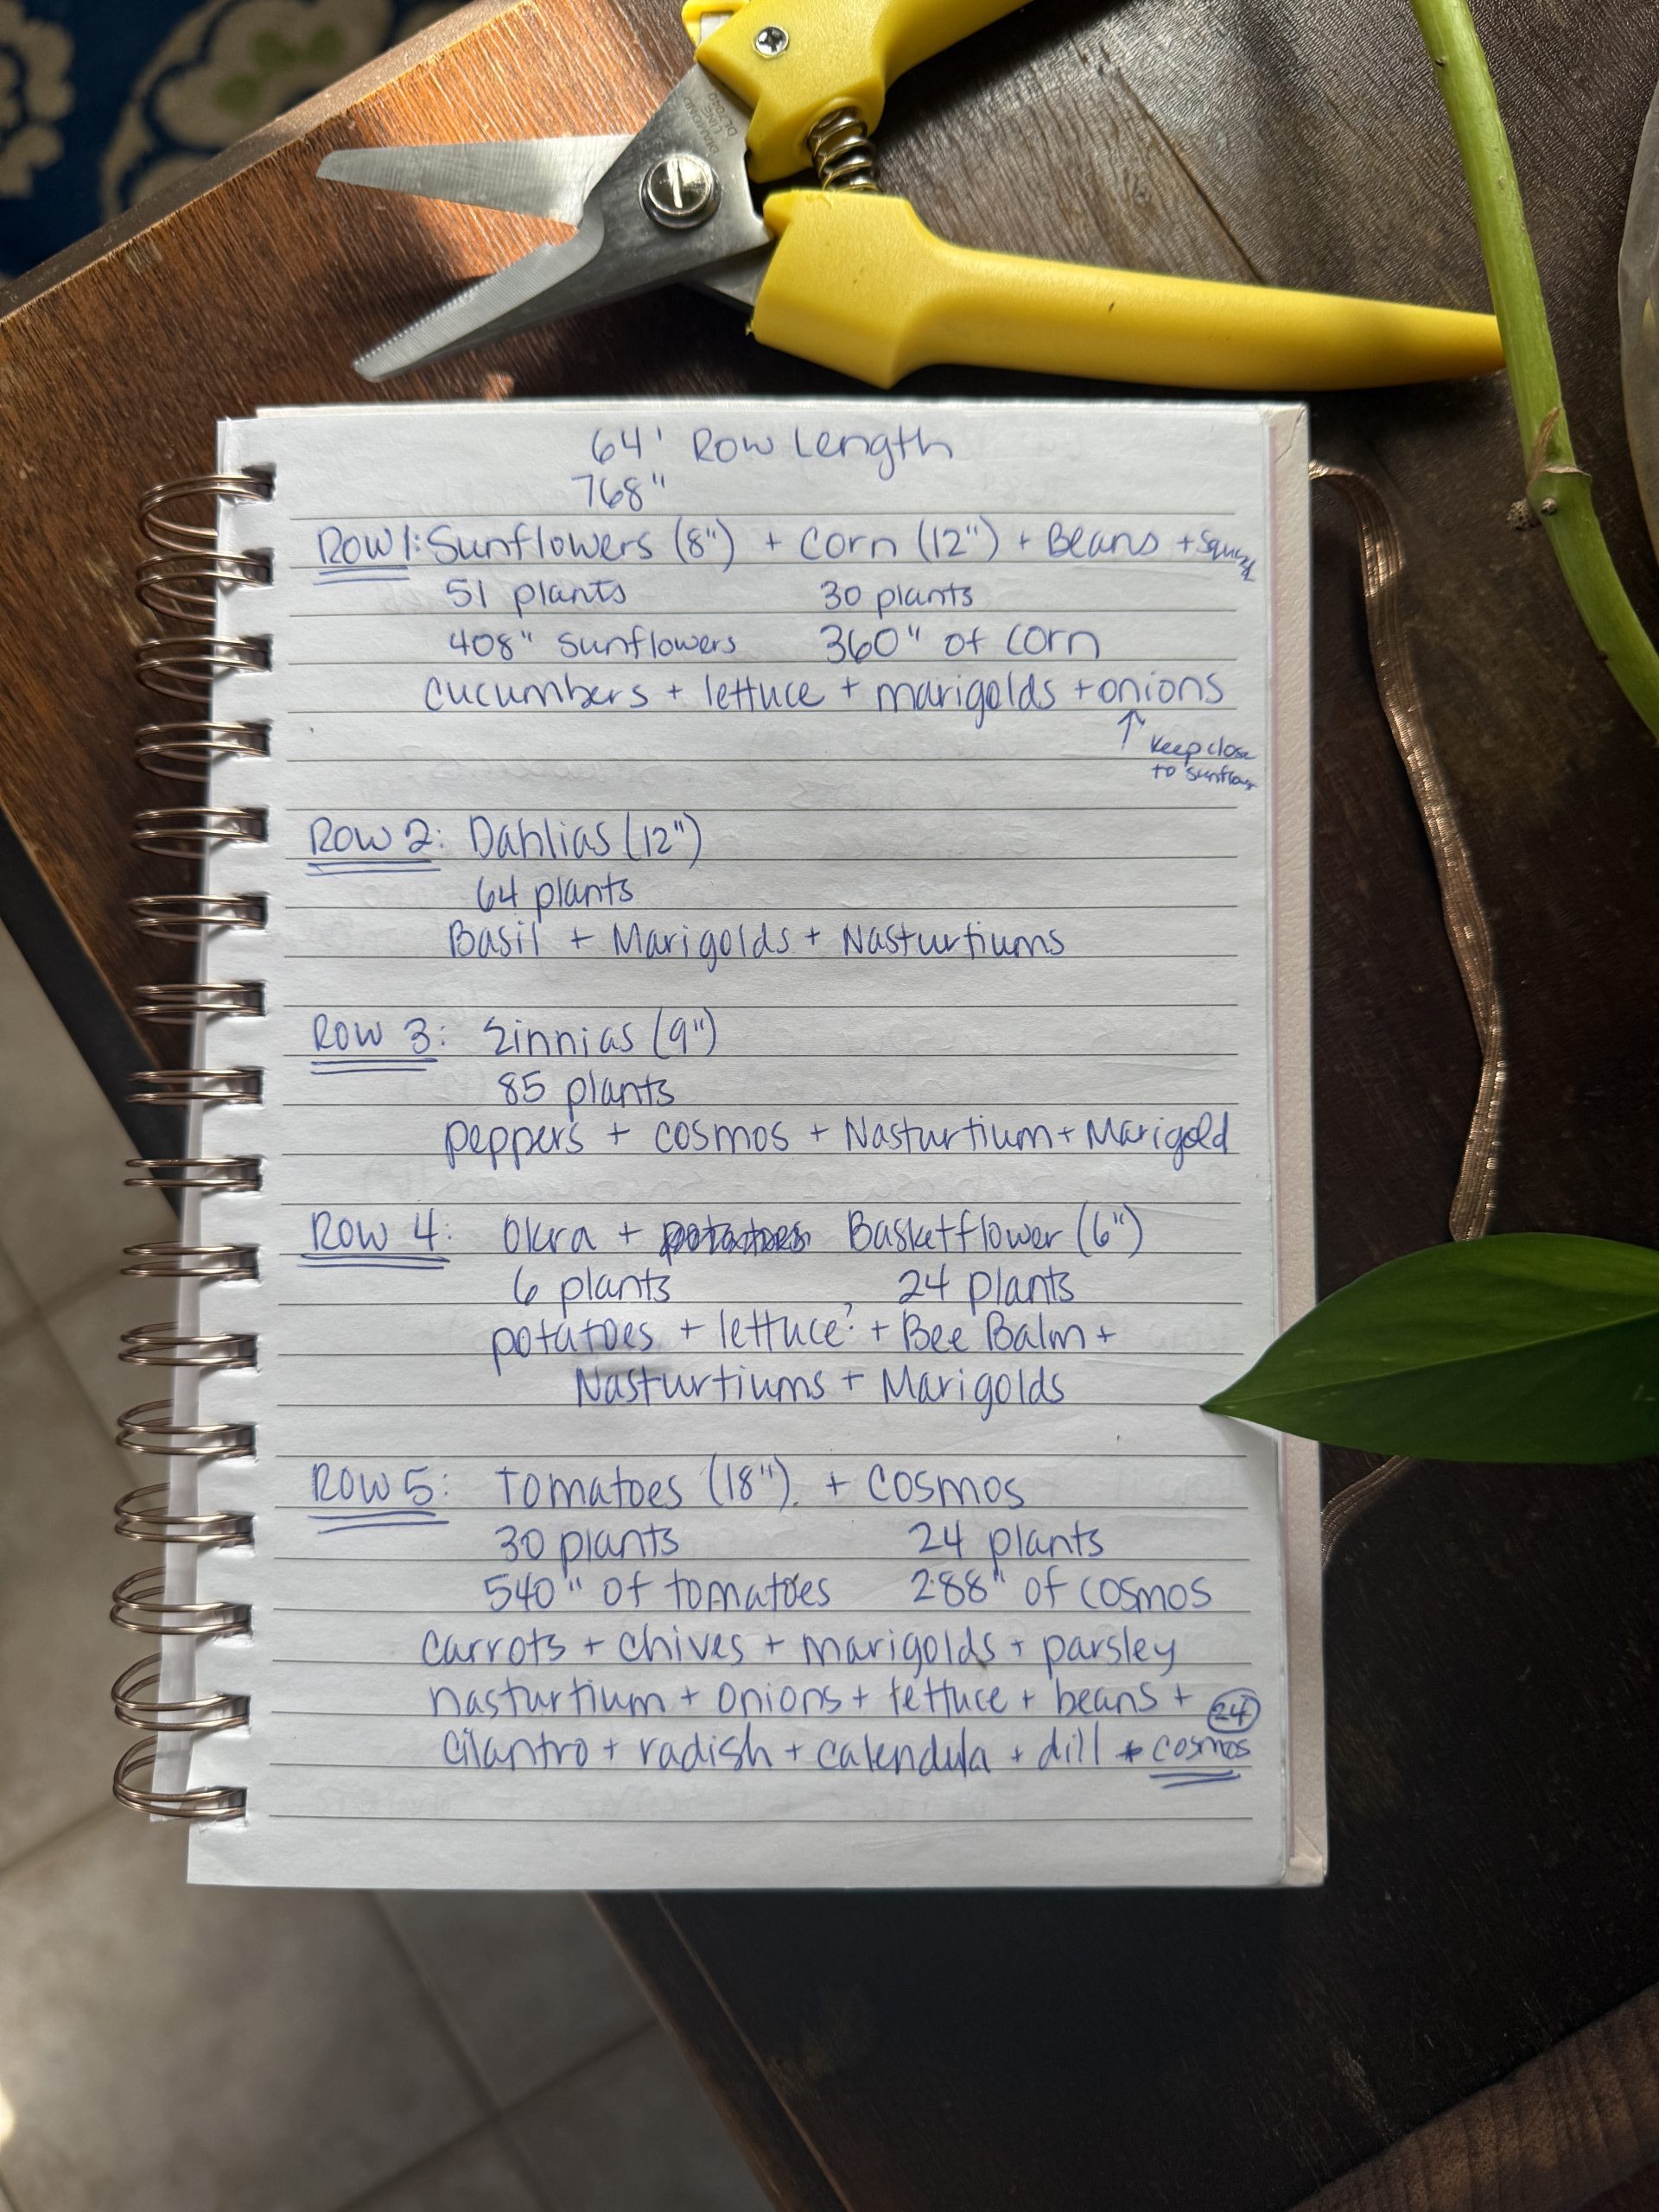 64' Row Length
768"
Row 1: Sunflowers (8") + Corn (12") + Beans + Squash
51 plants 30 plants
408" Sunflowers 360" of corn
cucumbers + lettuce + marigolds + onions
↑ Keep close
to sunflower
Row 2: Dahlias (12")
64 plants
Basil + Marigolds + Nasturtiums
Row 3: Zinnias (9")
85 plants
peppers + cosmos + Nasturtium + Marigold
Row 4: Okra + potatoes Basketflower (6")
6 plants 24 plants
potatoes + lettuce? + Bee Balm +
Nasturtiums + Marigolds
Row 5: Tomatoes (18") + Cosmos
30 plants 24 plants
540" of tomatoes 288" of cosmos
carrots + chives + marigolds + parsley
nasturtium + onions + lettuce + beans +
24
cilantro + radish + calendula + dill + cosmos